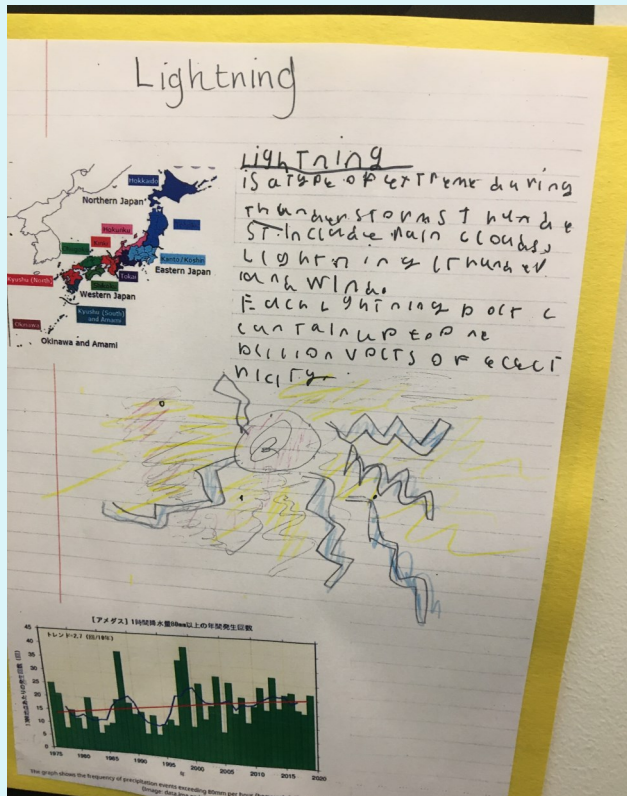 Lightning
Hokkaido
Northern Japan
Hokuriku
Kinki
Tokai
Kanto/Koshin
Eastern Japan
Kyushu (North)
Western Japan
Kyushu (South)
and Amami
Okinawa
Okinawa and Amami
Lightning
is a type of extreme during
thunderstorms Thunde
st include rain clouds,
Lightning (thunder
and wind.
Each Lightning bolt c
contain up to one
billion volts of elect
ricity.
【アメダス】1時間降水量80mm以上の年間発生回数
トレンド=2.7 (回/10年)
1,000地点あたりの発生回数 (回)
45
40
35
30
25
20
15
10
5
0
1975
1980
1985
1990
1995
2000
2005
2010
2015
2020
年
The graph shows the frequency of precipitation events exceeding 80mm per hour